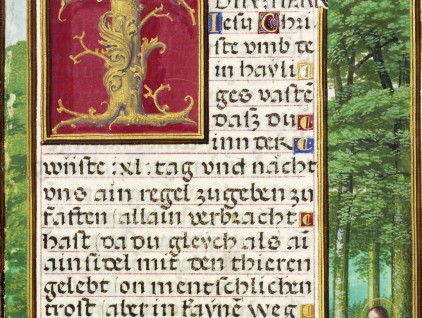 Jesu Chri
ste vmb te
in hayli
ges vastē
dasz du
inn der
wüste :xl: tag vnd nacht
vns ain regel zugeben zu
fasten (allain verbracht
hast (da du gleych als ai
ainsidel mit den thieren
gelebt on mentschlichen
trost (aber in kaynē weg